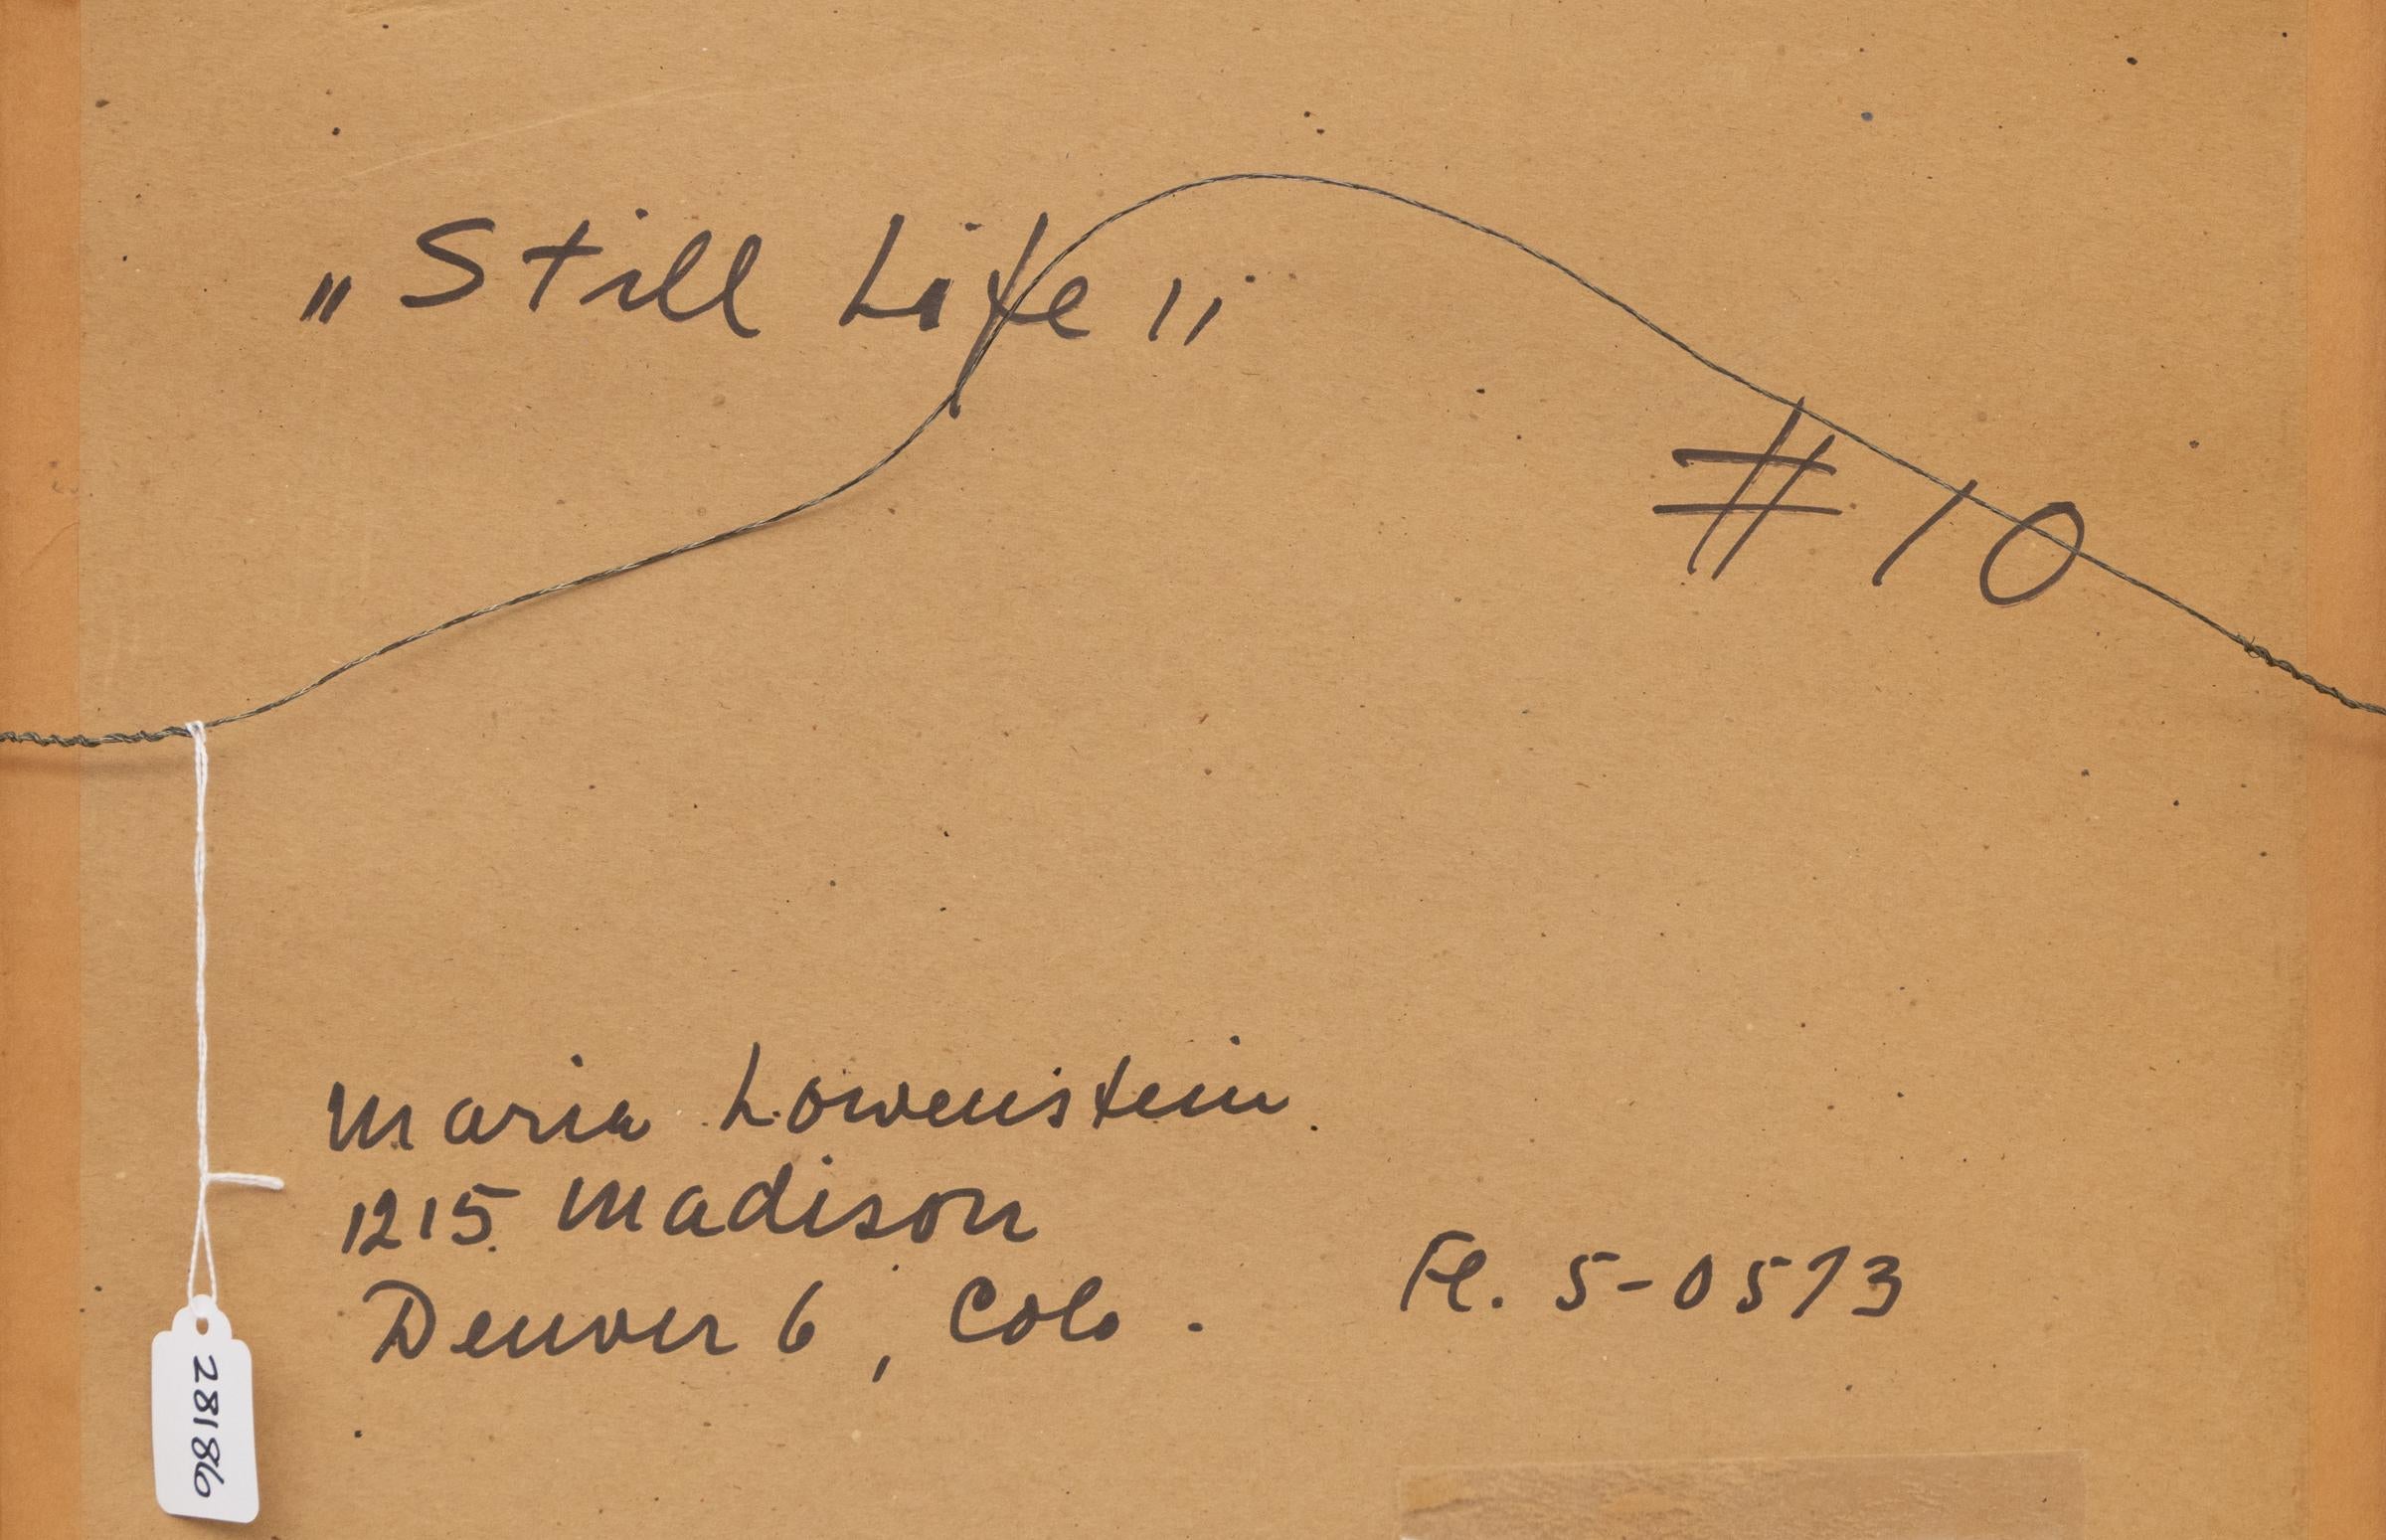 „Still Life"
#10
Maria Lowenstein.
1215 Madison
Denver 6, Colo.
Fl. 5-0573
28186